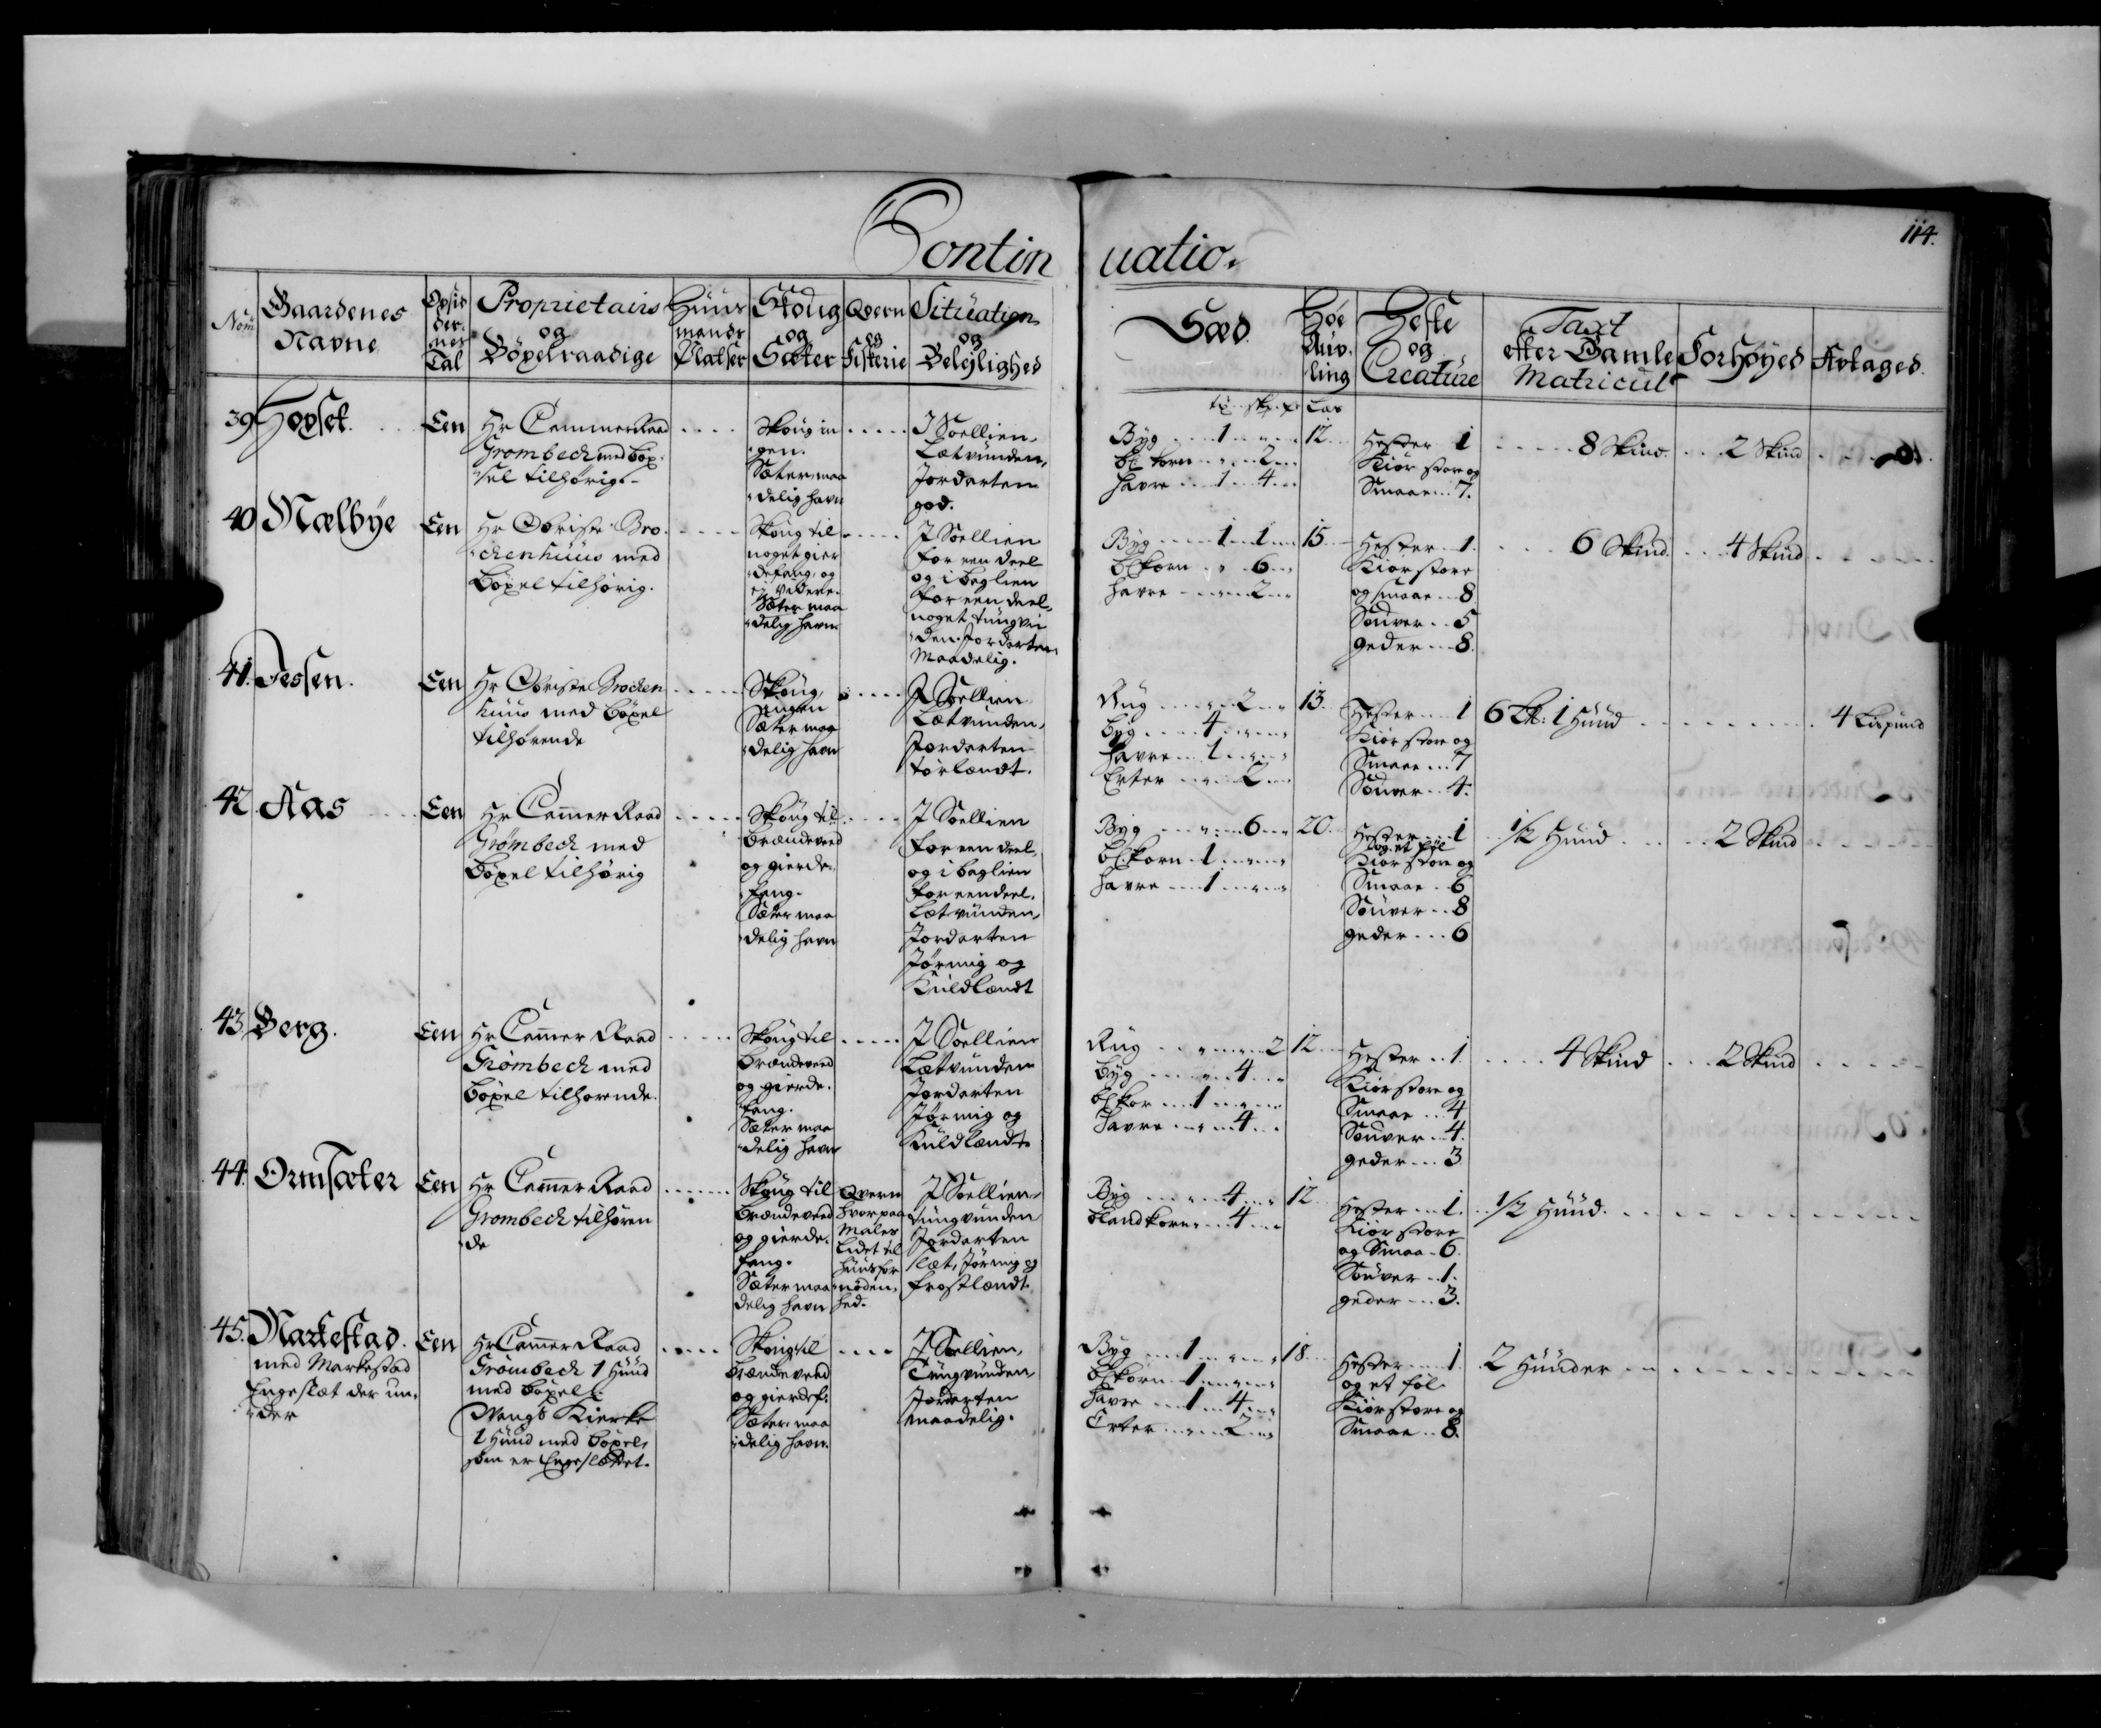 Continuatio.
114.
Num
Gaardenes
Navne
Opsid
der-
nes
Tal
Proprietairs
og
Böxelraadige
Huus
mands
Platser
Skoug
og
Sæter
Qvern
og
Fiskerie
Situation
og
Belejlighed
Sæd
Höe
Auv-
ling
Heste
og
Creature
Taxt
efter Gamle
Matricul
Forhöyed
Aftaged.
39 Hovset. Een
Hr CammerRaad
Grømbech med böx-
sel tilhørig.
Skoug in
gen.
Sæter maa
delig hafn
I Soellien,
Lætvunden,
Jordarten
god.
tr skp fr Las
Byg 1 12
bl korn 2
havre 1 4
Hester 1
Kiør store og
Smaae 7.
8 Skind. 2 Skind
40 Mælbye Een
Hr Obriste Bro-
ckenhuus med
Böxel tilhørig.
Skoug til
noget gier
defang, og
ej videre.
Sæter maa
delig hafn
I Soellien
for een deel
og i baglien
for een deel,
noget tungvun
den. Jordarten
Maadelig.
Byg 1 1 15
blkorn 6
havre 2
Hester 1.
Kiør store
og smaae 8
Souver 5
geder 8.
6 Skind. 4 Skind
41. Jessen. Een
Hr Obriste Brocken
huus med böxel
tilhørende
Skoug
ingen
Sæter maa
delig hafn
I Soellien
Lætvunden,
Jordarten
tørlændt.
Rug 2 13
byg 4
havre 1
Erter 2
Hester 1
Kiør store og
Smaae 7
Souver 4.
6 Lb: 1 Huud 4 Lispund
42 Aas Een
Hr Cammer Raad
Grømbech med
Böxel tilhørig
Skoug til
brændeveed
og gierde-
fang.
Sæter maa
delig hafn
I Soellien
for een deel,
og i baglien
for een deel.
Lætvunden,
Jordarten
Jørmig og
Kuldlændt
Byg 6 20
bl.korn 1
havre 1
Hester 1
og et føl
Kiør store og
Smaae 6
Souver 8
geder 6
1/2 Huud 2 Skind
43. Berg. Een
Hr Cammer Raad
Grømbech med
böxel tilhørende.
Skoug til
brændeveed
og gierde-
fang.
Sæter maa
delig hafn
I Soellien
Lætvunden
Jordarten
Jørmig og
Kuldlændt
Rug 2 12
byg 4
blkor 1
Havre 4
Hester 1.
Kiør store og
Smaae 4
Souver 4.
geder 3
4 Skind 2 Skind
44. Ormsæter Een
Hr Cammer Raad
Grømbech tilhøren
de
Skoug til
brændeveed
og gierde-
fang.
Sæter maa
delig hafn
Qvern
hvorpaa
Males
Lidet til
huusfor
nøden,
hed.
I Soellien,
tungvunden
Jordarten
slæt, Jørmig og
frostlændt.
Byg 4 12
blandkorn 4
Hester 1.
Kiør store
og Smaa 6.
Souver 1.
geder 3.
1/2 Huud.
45. Markestad. Een
med Markestad
Engeslæt der un-
der
Hr Cammer Raad
Grømbech 1 Huud
med böxel.
Vangs Kierke
1 Huud med böxel,
som er Engeslættet.
Skoug til
brændeveed
og gierdef.
Sæter maa
delig hafn.
I Soellien,
Tungvunden
Jordarten
maadelig.
Byg 1 18
blkorn 1
havre 1 4
Erter 2
Hester 1.
og et føl
Kiør store og
Smaae 8.
2 Huuder